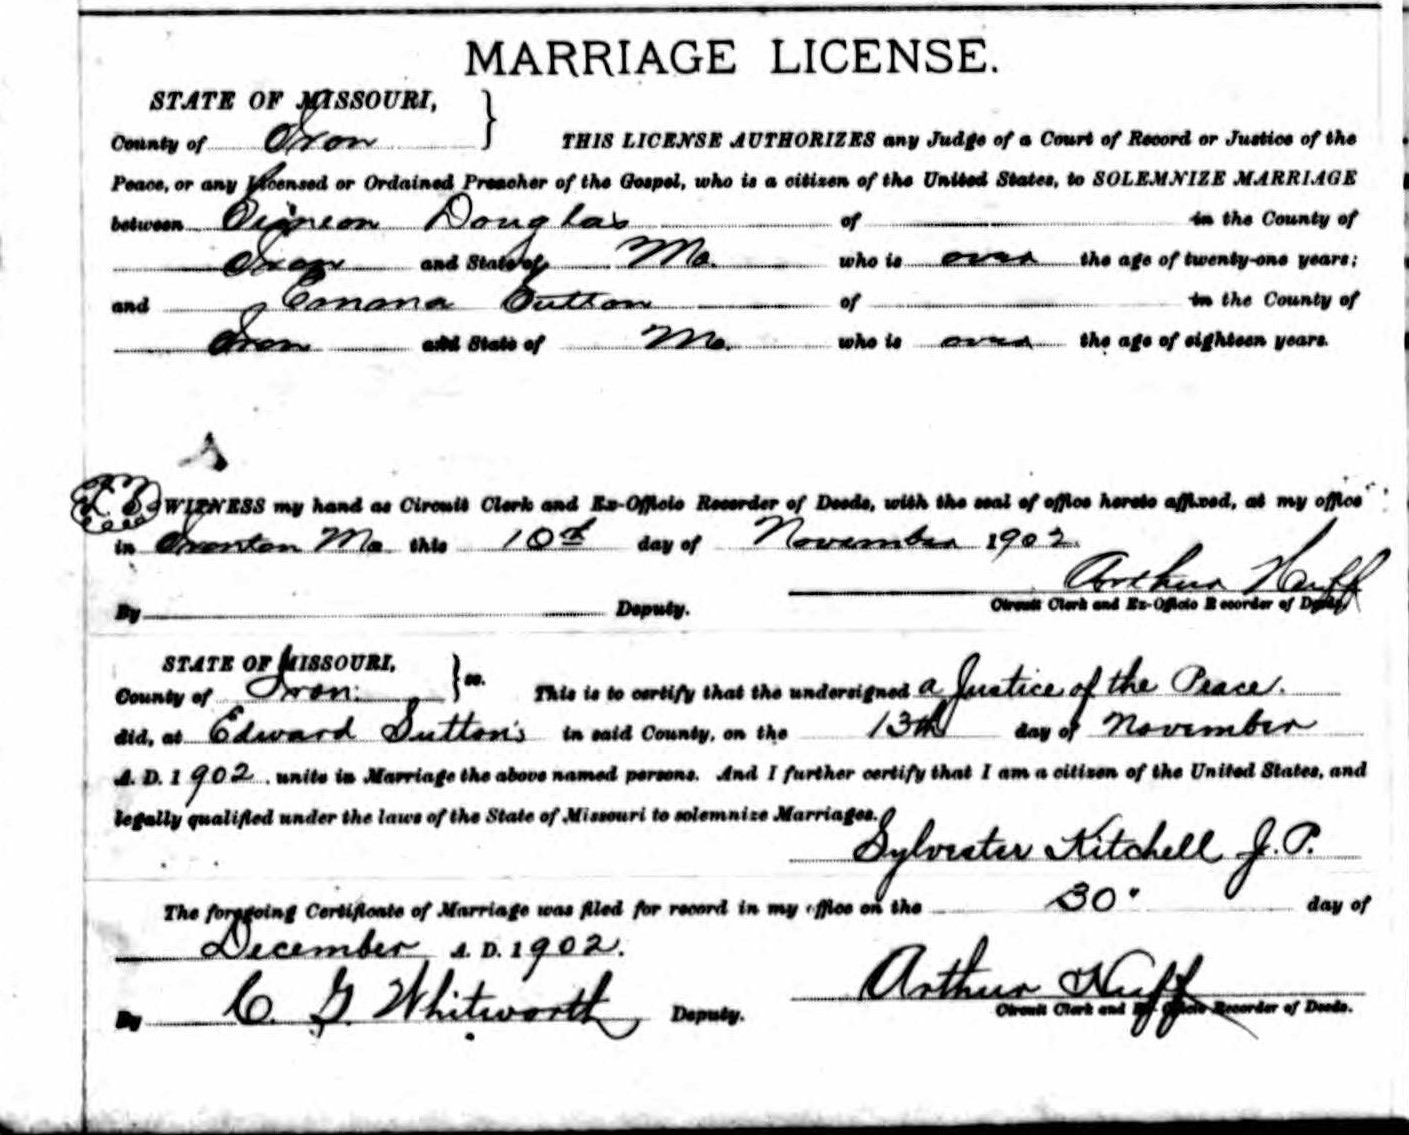 MARRIAGE LICENSE.
STATE OF MISSOURI,
County of Iron } THIS LICENSE AUTHORIZES any Judge of a Court of Record or Justice of the
Peace, or any Licensed or Ordained Preacher of the Gospel, who is a citizen of the United States, to SOLEMNIZE MARRIAGE
between Simeon Douglas of in the County of
Iron and State of Mo. who is over the age of twenty-one years;
and Emma Sutton of in the County of
Iron and State of Mo. who is over the age of eighteen years.
L. S. WITNESS my hand as Circuit Clerk and Ex-Officio Recorder of Deeds, with the seal of office hereto affixed, at my office
in Ironton Mo this 10th day of November 1902.
Arthur Huff
By Deputy. Circuit Clerk and Ex-Officio Recorder of Deeds.
STATE OF MISSOURI,
County of Iron } ss. This is to certify that the undersigned a Justice of the Peace.
did, at Edward Sutton's in said County, on the 13th day of November
A. D. 1902. unite in Marriage the above named persons. And I further certify that I am a citizen of the United States, and
legally qualified under the laws of the State of Missouri to solemnize Marriages.
Sylvester Kitchell J. P.
The foregoing Certificate of Marriage was filed for record in my office on the 30" day of
December A. D. 1902.
Arthur Huff
By C. G. Whitworth Deputy. Circuit Clerk and Ex-Officio Recorder of Deeds.